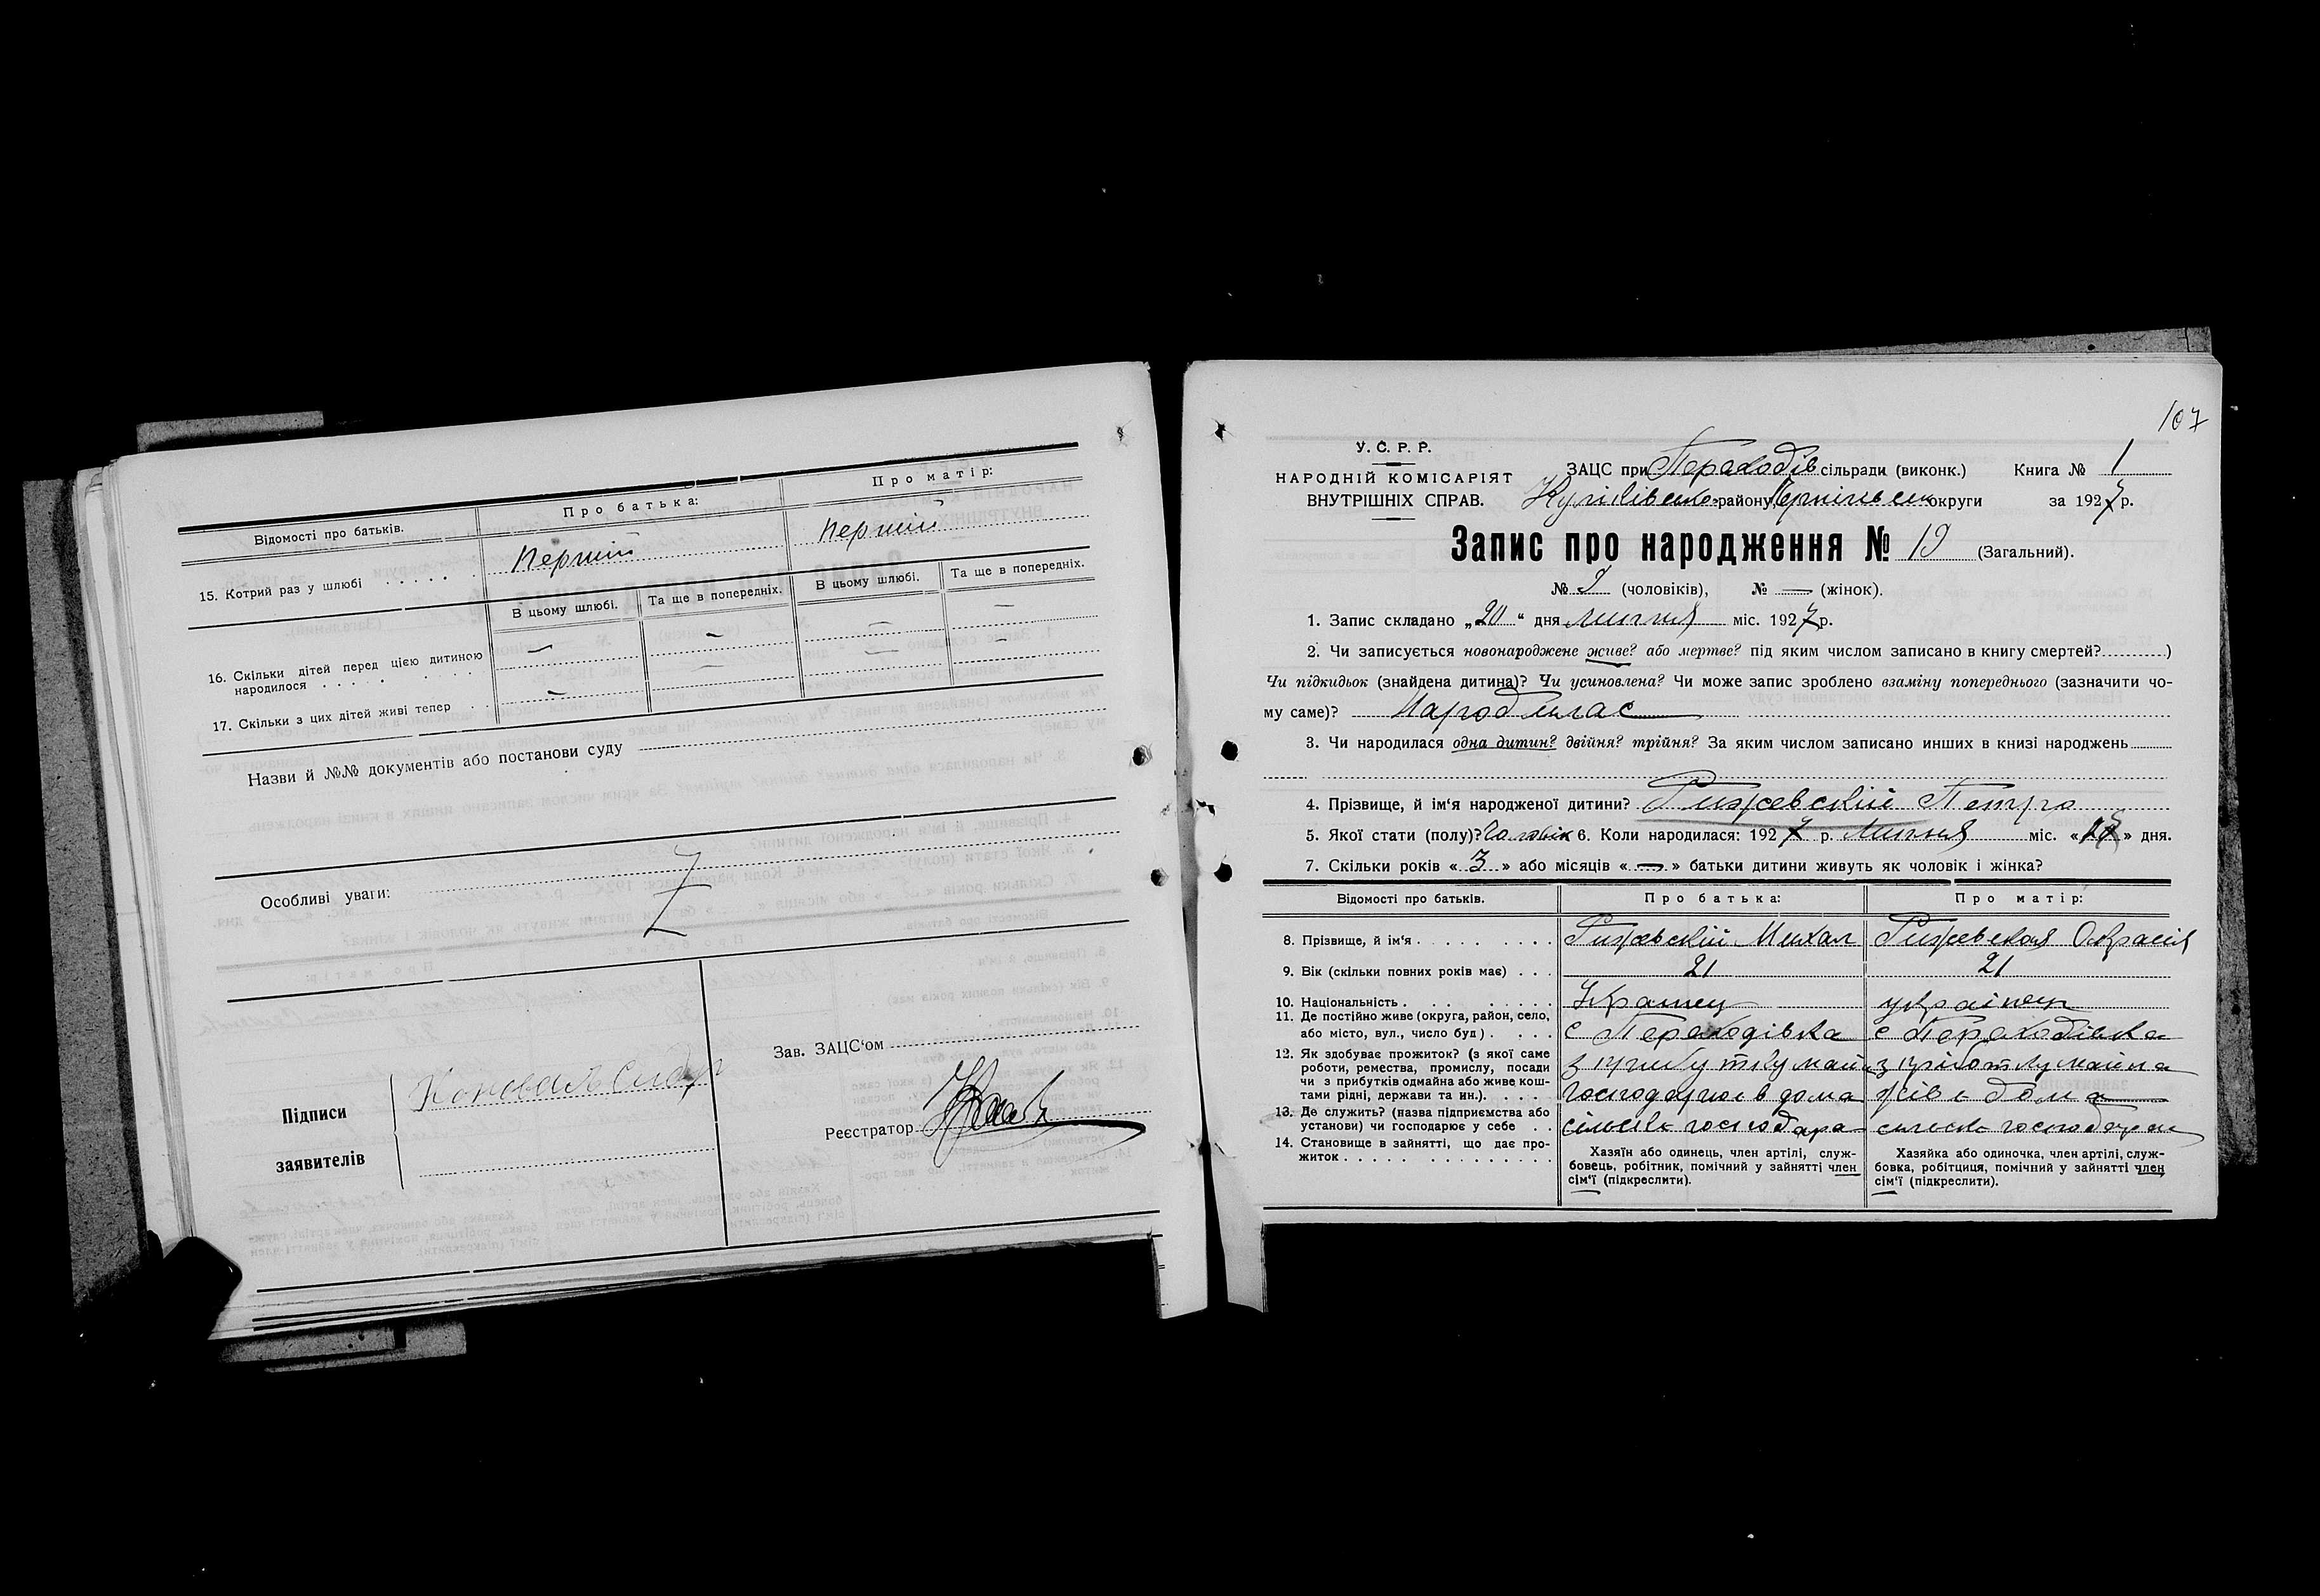 Відомості про батьків.
Про батька:
Про матір:
15. Котрий раз у шлюбі
перший
перший
В цьому шлюбі.
Та ще в попередніх.
В цьому шлюбі.
Та ще в попередніх.
16. Скільки дітей перед цією дитиною
народилося
— — — —
17. Скільки з цих дітей живі тепер
— — —
Назви й №№ документів або постанови суду
Особливі уваги:
Z
Підписи
заявителів
Зав. ЗАЦС'ом
Реєстратор
107
У. С. Р. Р.
НАРОДНІЙ КОМІСАРІЯТ
ВНУТРІШНІХ СПРАВ.
ЗАЦС при Переходів сільради (виконк.) Книга № 1
Куликівсько району округи за 1927 р.
Запис про народження № 19 (Загальний).
№ 9 (чоловіків), № — (жінок).
1. Запис складано „20“ дня липня міс. 1927 р.
2. Чи записується новонароджене живе? або мертве? під яким числом записано в книгу смертей? )
Чи підкидьок (знайдена дитина)? Чи усиновлена? Чи може запис зроблено взаміну попереднього (зазначити чо-
му саме)?
3. Чи народилася одна дитин? двійня? трійня? За яким числом записано инших в книзі народжень
4. Прізвище, й ім'я народженої дитини? Рижевский Петро
5. Якої стати (полу)? Чоловік 6. Коли народилася: 1927 р. Липня міс. « » дня.
7. Скільки років «3» або місяців «—» батьки дитини живуть як чоловік і жінка?
Відомості про батьків.
Про батька:
Про матір:
8. Прізвище, й ім'я
Рижевский Михал
Рижевская
9. Вік (скільки повних років має)
21
21
10. Національність
українец
11. Де постійно живе (округа, район, село,
або місто, вул., число буд)
с Переходівка
с Переходівка
12. Як здобуває прожиток? (з якої саме
роботи, ремества, промислу, посади
чи з прибутків одмайна або живе кош-
тами рідні, держави та ин.).
з прибутку майна
з прибутку майна
13. Де служить? (назва підприємства або
установи) чи господарює у себе
господарює в дома
14. Становище в зайнятті, що дає про-
житок
Хазяїн або одинець, член артілі, служ-
бовець, робітник, помічний у зайнятті член
сім'ї (підкреслити).
Хазяйка або одиночка, член артілі, служ-
бовка, робітциця, помічний у зайнятті член
сім'ї (підкреслити).